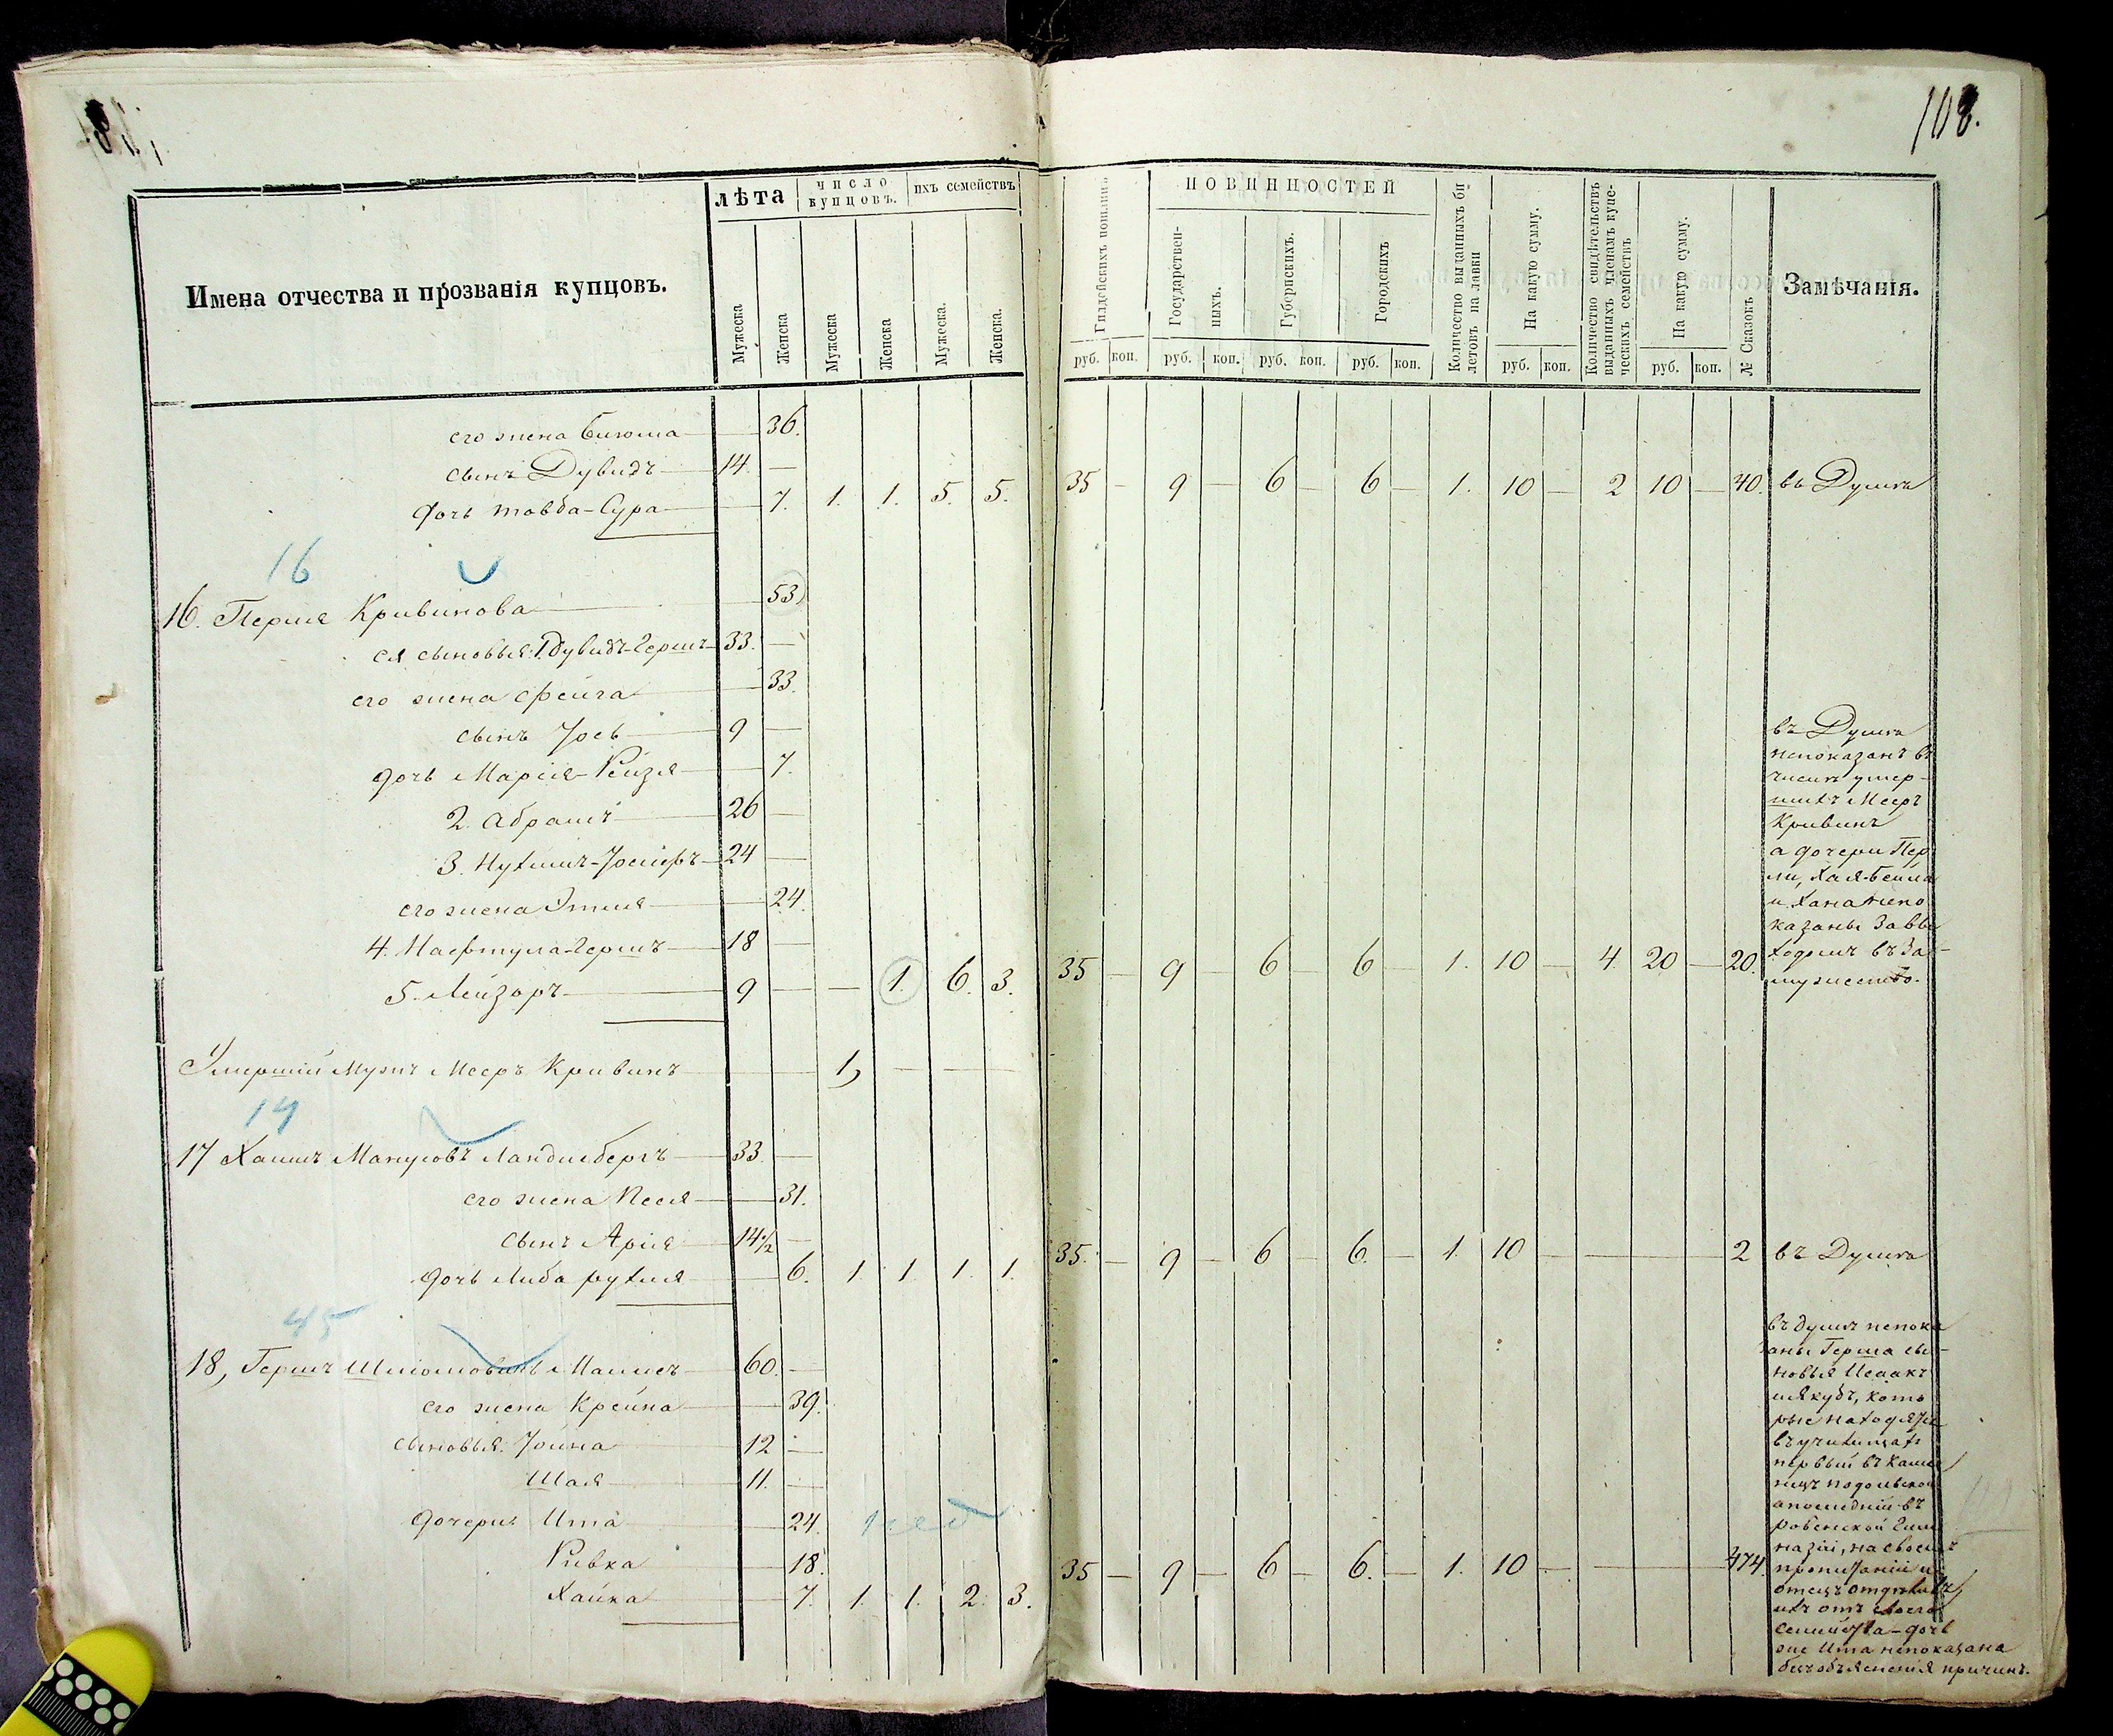 108.
Имена отчества и прозванія купцовъ.
лѣта
число купцовъ.
ихъ семействъ
Мужеска
Женска
Мужеска
Женска
Мужеска.
Женска.
Гильдейскихъ пошлинъ
ПОВИННОСТЕЙ
Государствен-
ныхъ.
Губернскихъ.
Городскихъ
Количество выданныхъ би-
летовъ на лавки
На какую сумму.
Количество свидѣтельствъ
выданныхъ членамъ купе-
ческихъ семействъ
На какую сумму.
№ Сказокъ
Замѣчанія.
руб. коп. руб. коп. руб. коп. руб. коп. руб. коп. руб. коп.
его жена 36.
сынъ Дувидъ 14. —
дочь товба-Сура 7. 1. 1. 5. 5. 35 — 9 — 6 — 6 — 1. 10 — 2 10 — 40.
16
16. Перля Кривинова 53
ея сыновья: 1 Дувидъ-Гершъ 33. —
его жена Фейга 33.
сынъ Іось 9 —
дочь Марія-Рейзя 7.
2. Абрамъ 26 —
3. Нухимъ-Іосифъ 24 —
его жена Этля 24.
4. Нафтула-Гершъ 18 —
5. Лейзоръ 9 — — 1. 6. 3. 35 — 9 — 6 — 6 — 1. 10 — 4. 20 — 20.
непоказанъ въ
числѣ умер-
шихъ Мееръ
Кривинъ
а дочери Пер
ли, Хая-Бейла
и Хана непо
казаны за вы
ходомъ въ за-
мужество.
Умершій мужъ Мееръ Кривинъ 1, — — —
17 Хаимъ Мануловъ Ландсбергъ 33. —
его жена Песя 31.
сынъ Арія 14 1/2 —
дочь Либа рухля 6. 1 1. 1. 1. 35. — 9 — 6 — 6. — 1. 10 — 2
45
18, Гершъ Шліомовичъ 60. —
его жена Крейна 39.
сыновья: Іойна 12 —
Шая 11. —
дочери Ита 24.
Ривка 18.
Хайка 7. 1. 1. 2. 3. 35 — 9 — 6 — 6. — 1. 10 — 474
въ душъ непока
заны Герша сы-
новья Исаакъ
иЯкубъ, кото
рые находятся
первый въ Каме
нецъ подольской
апослѣдній въ
ровенской Гим
назіи, на своемъ
пропитаніи и
ихъ отъ своего
семейства - дочь
же Ита непоказана
безъ объясненія причинъ.